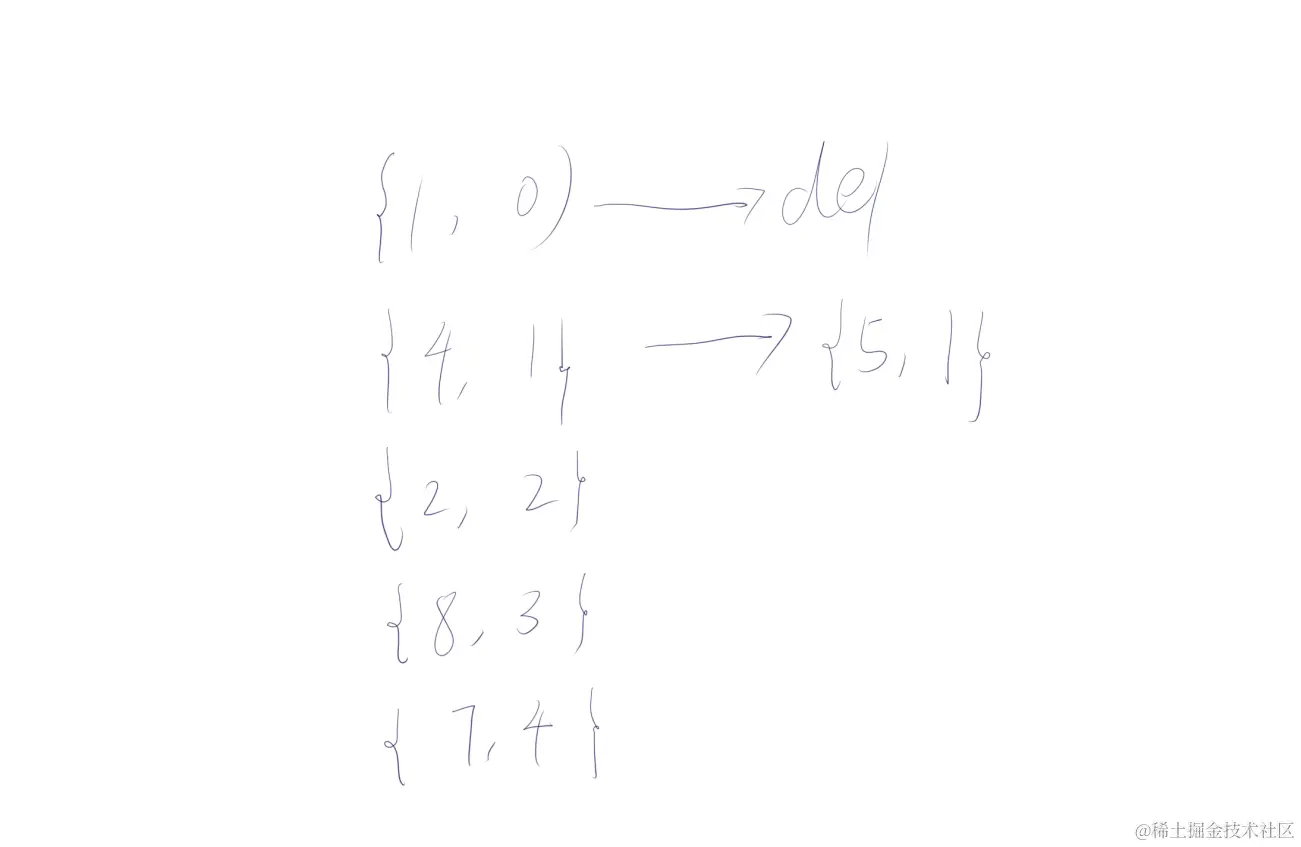 {1, 0) → del
{4, 1} → {5, 1}
{2, 2}
{8, 3}
{7, 4}
@稀土掘金技术社区